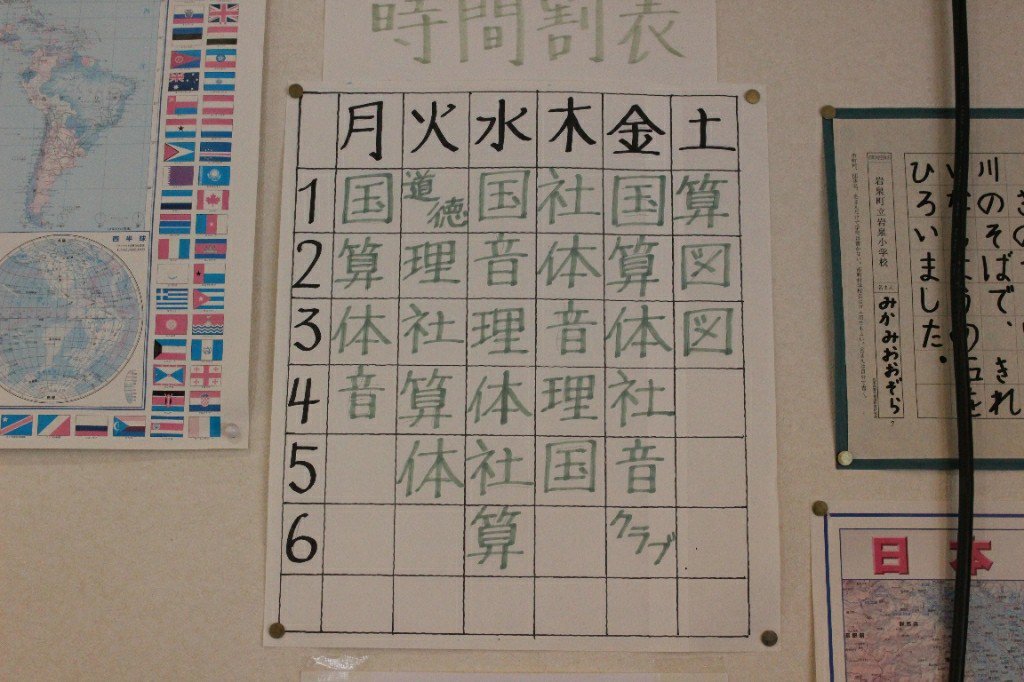 時間割表
月 火 水 木 金 土
1 国 道徳 国 社 国 算
2 算 理 音 体 算 図
3 体 社 理 音 体 図
4 音 算 体 理 社
5 体 社 国 音
6 算 クラブ
西半球
岩泉町立岩泉小学校
みかみおおぞら
川のそばで、きれ
ひろいました。
日本